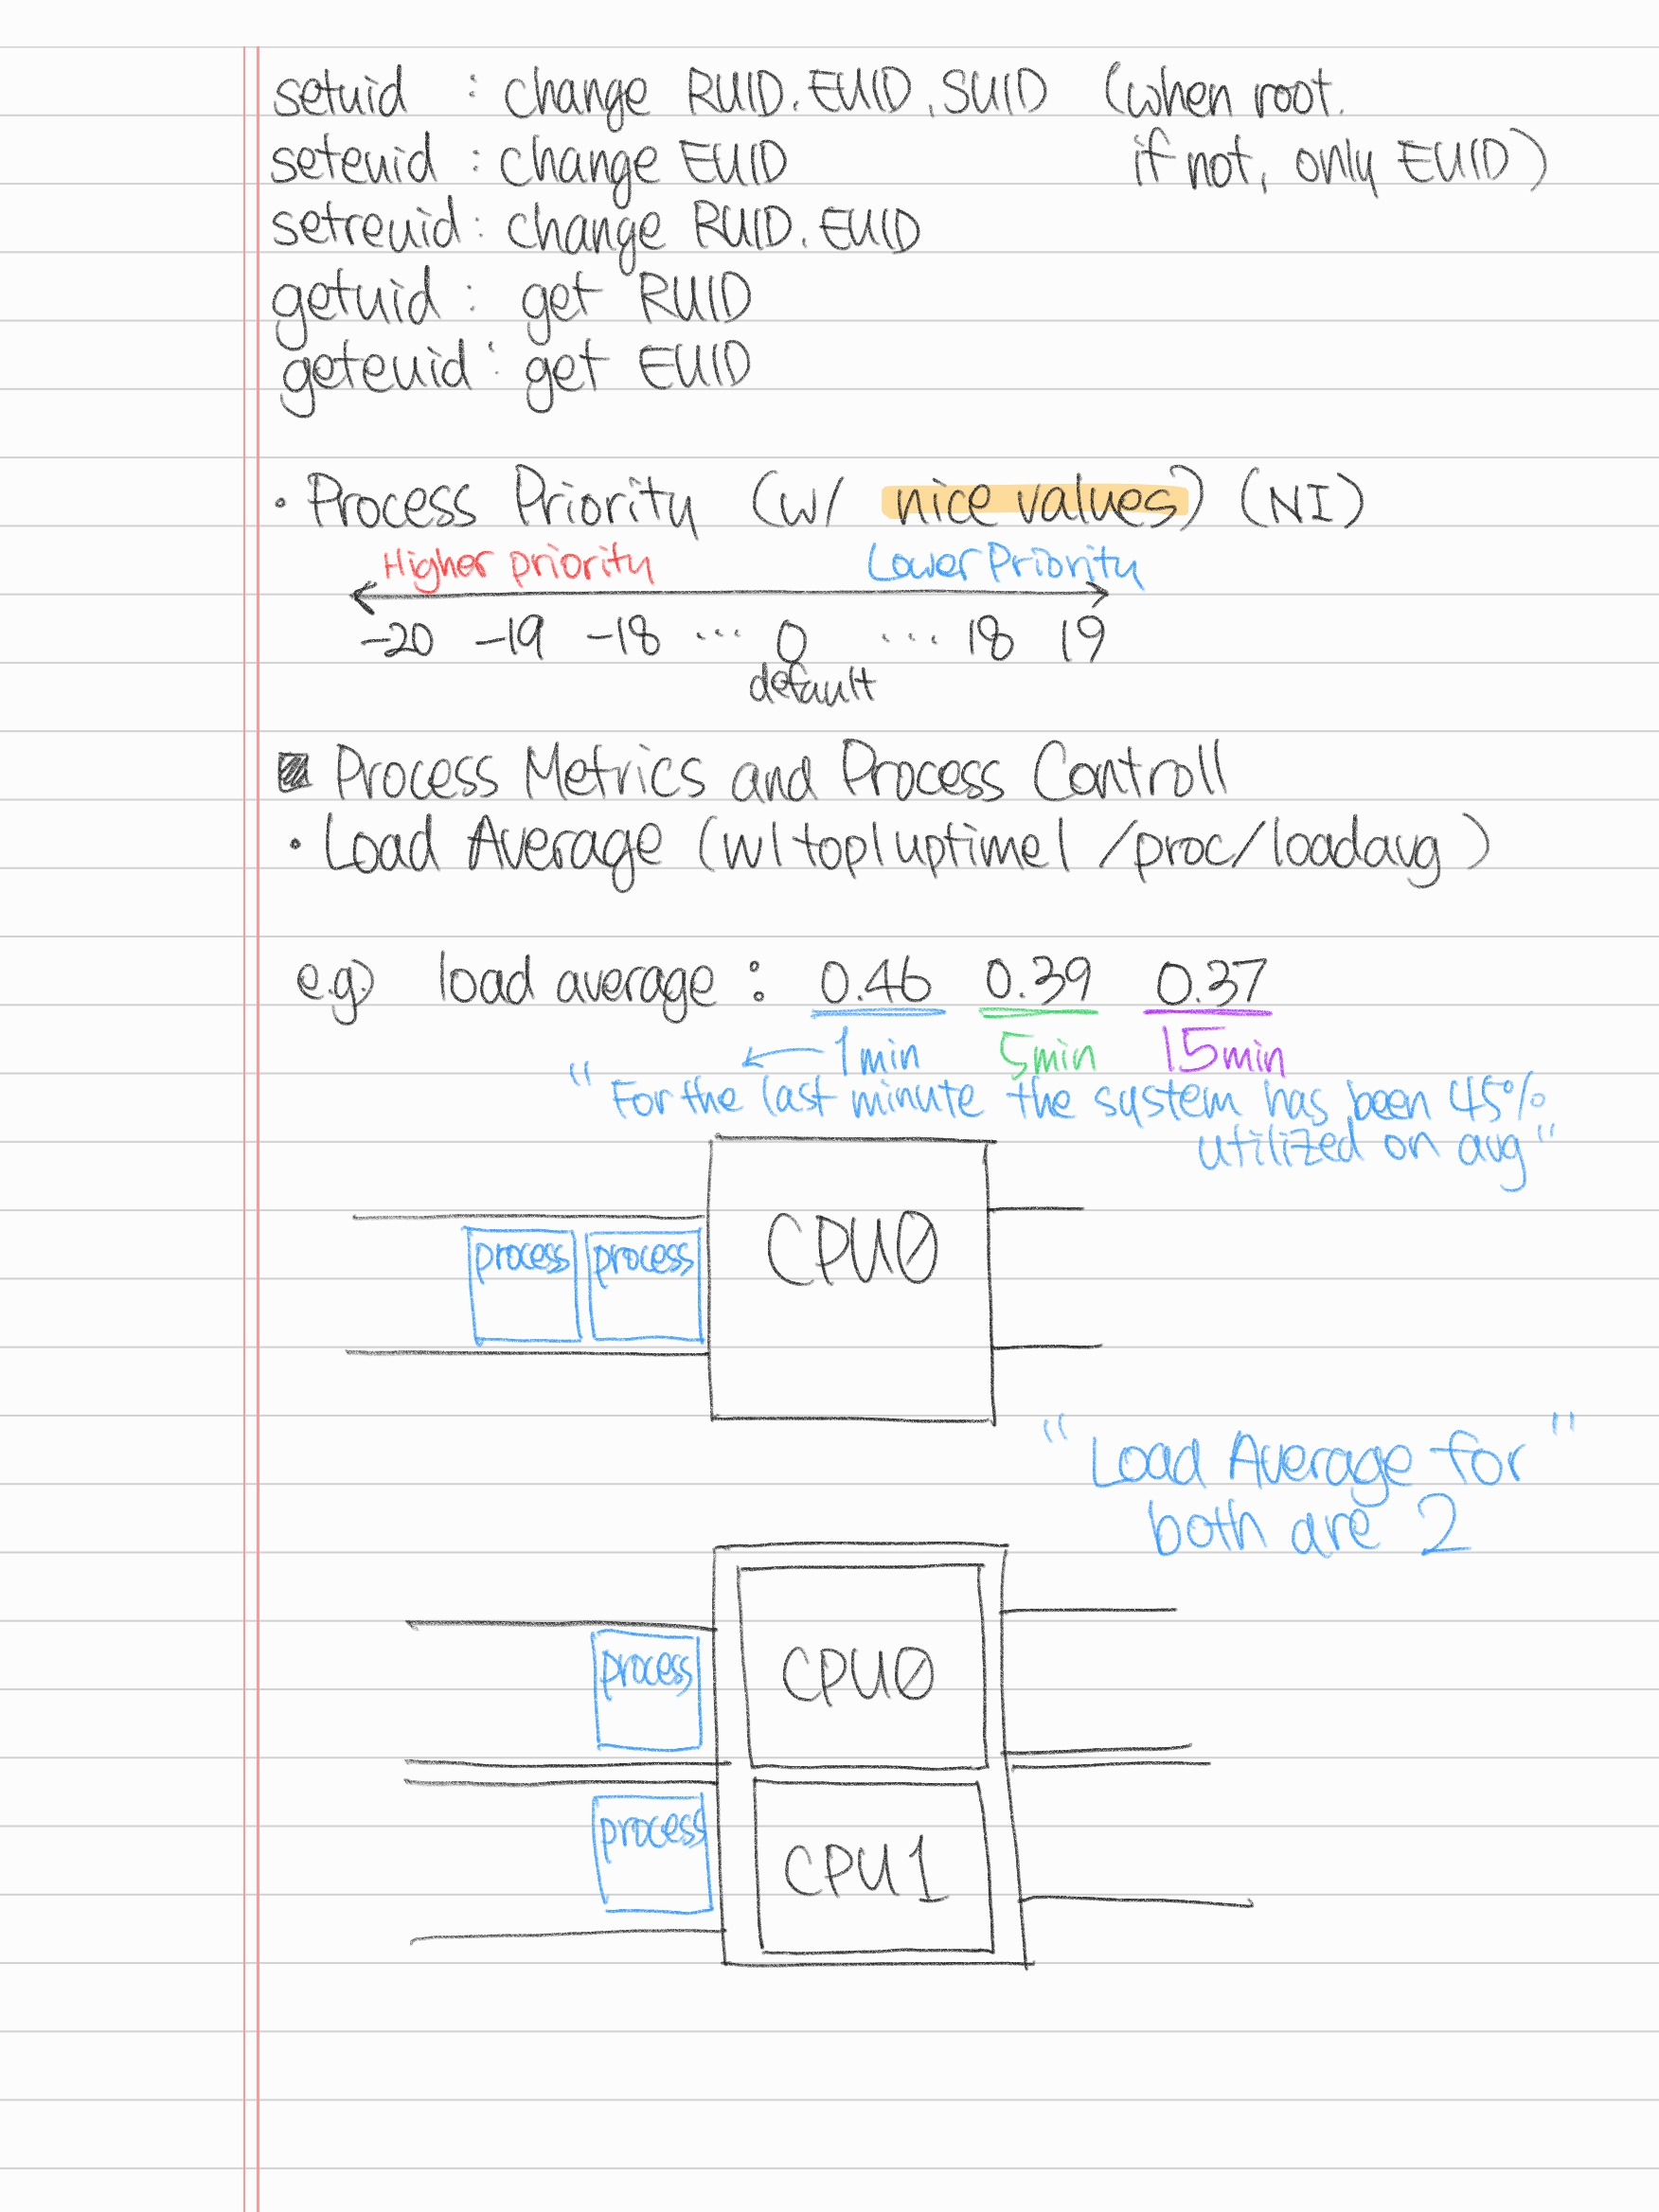 setuid : change RUID, EUID, SUID (when root.
seteuid : change EUID if not, only EUID)
setreuid : change RUID, EUID
getuid : get RUID
geteuid : get EUID
• Process Priority (w/ nice values) (NI)
Higher priority Lower Priority
-20 -19 -18 ... 0 ... 18 19
default
Process Metrics and Process Controll
• Load Average (w|top|uptime| /proc/loadavg)
e.g) load average : 0.46 0.39 0.37
← 1min 5min 15min
"For the last minute the system has been 45%
utilized on avg"
CPU0
process process
"Load Average for"
both are 2
process CPU0
process CPU1